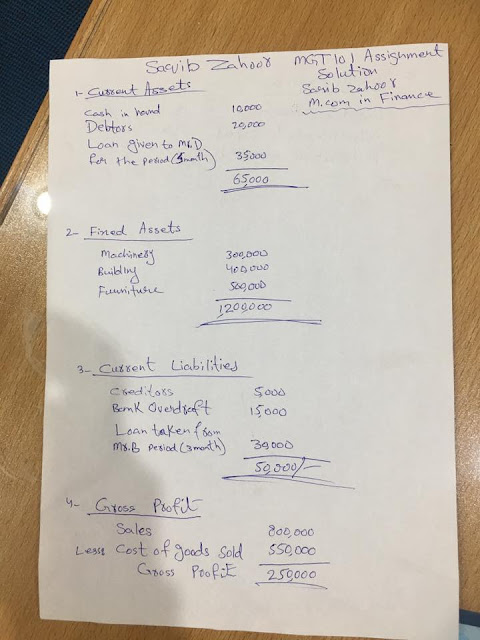 Saqib Zahoor MGT101 Assignment
Solution
Saqib Zahoor
M.com in Finance
1- Current Assets
Cash in hand 10,000
Debtors 20,000
Loan given to Mr.D
for the period (5month) 35,000
65,000
2- Fixed Assets
Machinery 300,000
Building 400,000
Furniture 500,000
1200,000
3- Current Liabilities
Creditors 5,000
Bank Overdraft 15,000
Loan taken from
Mr.B period (3month) 30,000
50,000/-
4- Gross Profit
Sales 800,000
Less Cost of goods sold 550,000
Gross Profit 250,000